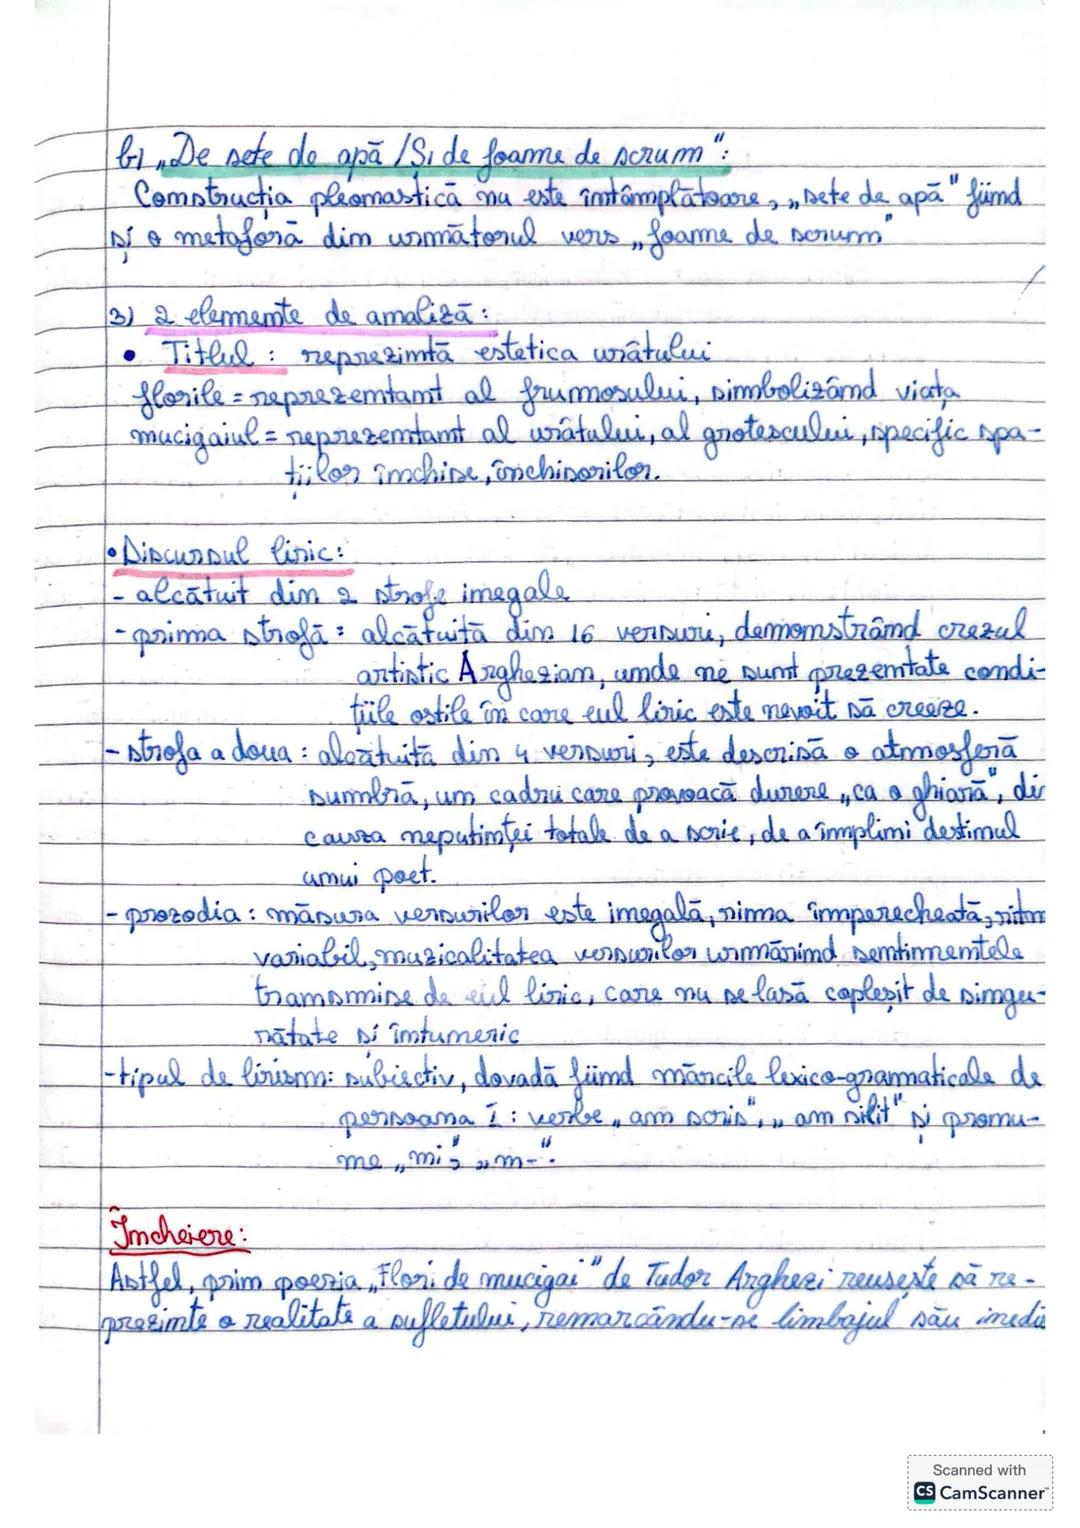 b) „De sete de apă / Și de foame de scrum":
Construcția pleonastică nu este întâmplătoare, „sete de apă" fiind
și o metaforă din următorul vers „foame de scrum"
3) 2 elemente de analiză:
• Titlul : reprezintă estetica urâtului
florile = reprezentant al frumosului, simbolizând viața
mucigaiul = reprezentant al urâtului, al grotescului, specific spa-
țiilor închise, închisorilor.
• Discursul liric:
- alcătuit din 2 strofe inegale
- prima strofă : alcătuită din 16 versuri, demonstrând crezul
artistic Arghezian, unde ne sunt prezentate condi-
țiile ostile în care eul liric este nevoit să creeze.
- strofa a doua : alcătuită din 4 versuri, este descrisă o atmosferă
sumbră, un cadru care provoacă durere „ca o ghiară", din
cauza neputinței totale de a scrie, de a împlini destinul
unui poet.
- prozodia : măsura versurilor este inegală, rima împerecheată, ritm
variabil, muzicalitatea versurilor urmărind sentimentele
transmise de eul liric, care nu se lasă copleșit de singu-
rătate și întuneric
- tipul de lirism: subiectiv, dovadă fiind mărcile lexico-gramaticale de
persoana I : verbe „am scris", „am silit" și pronu-
me „mi", „m-".
Încheiere:
Astfel, prin poezia „Flori de mucigai" de Tudor Arghezi reușește să re-
prezinte o realitate a sufletului, remarcându-se limbajul său inedit
Scanned with
CS CamScanner